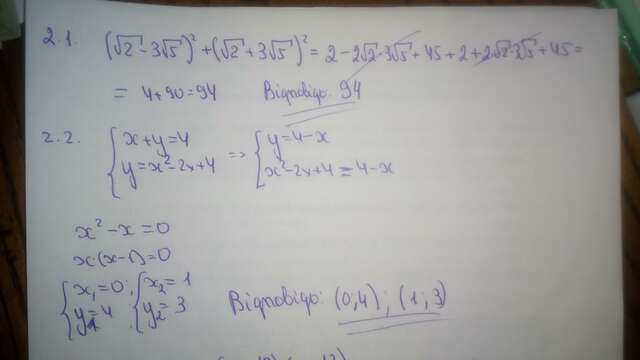 2.1. (√2 - 3√5)² + (√2 + 3√5)² = 2 - 2√2·3√5 + 45 + 2 + 2√2·3√5 + 45 =
= 4 + 90 = 94 Відповідь: 94
2.2. { x + y = 4 => { y = 4 - x
y = x² - 2x + 4 x² - 2x + 4 = 4 - x
x² - x = 0
x·(x - 1) = 0
{ x₁ = 0; { x₂ = 1
y₁ = 4 y₂ = 3 Відповідь: (0; 4); (1; 3)